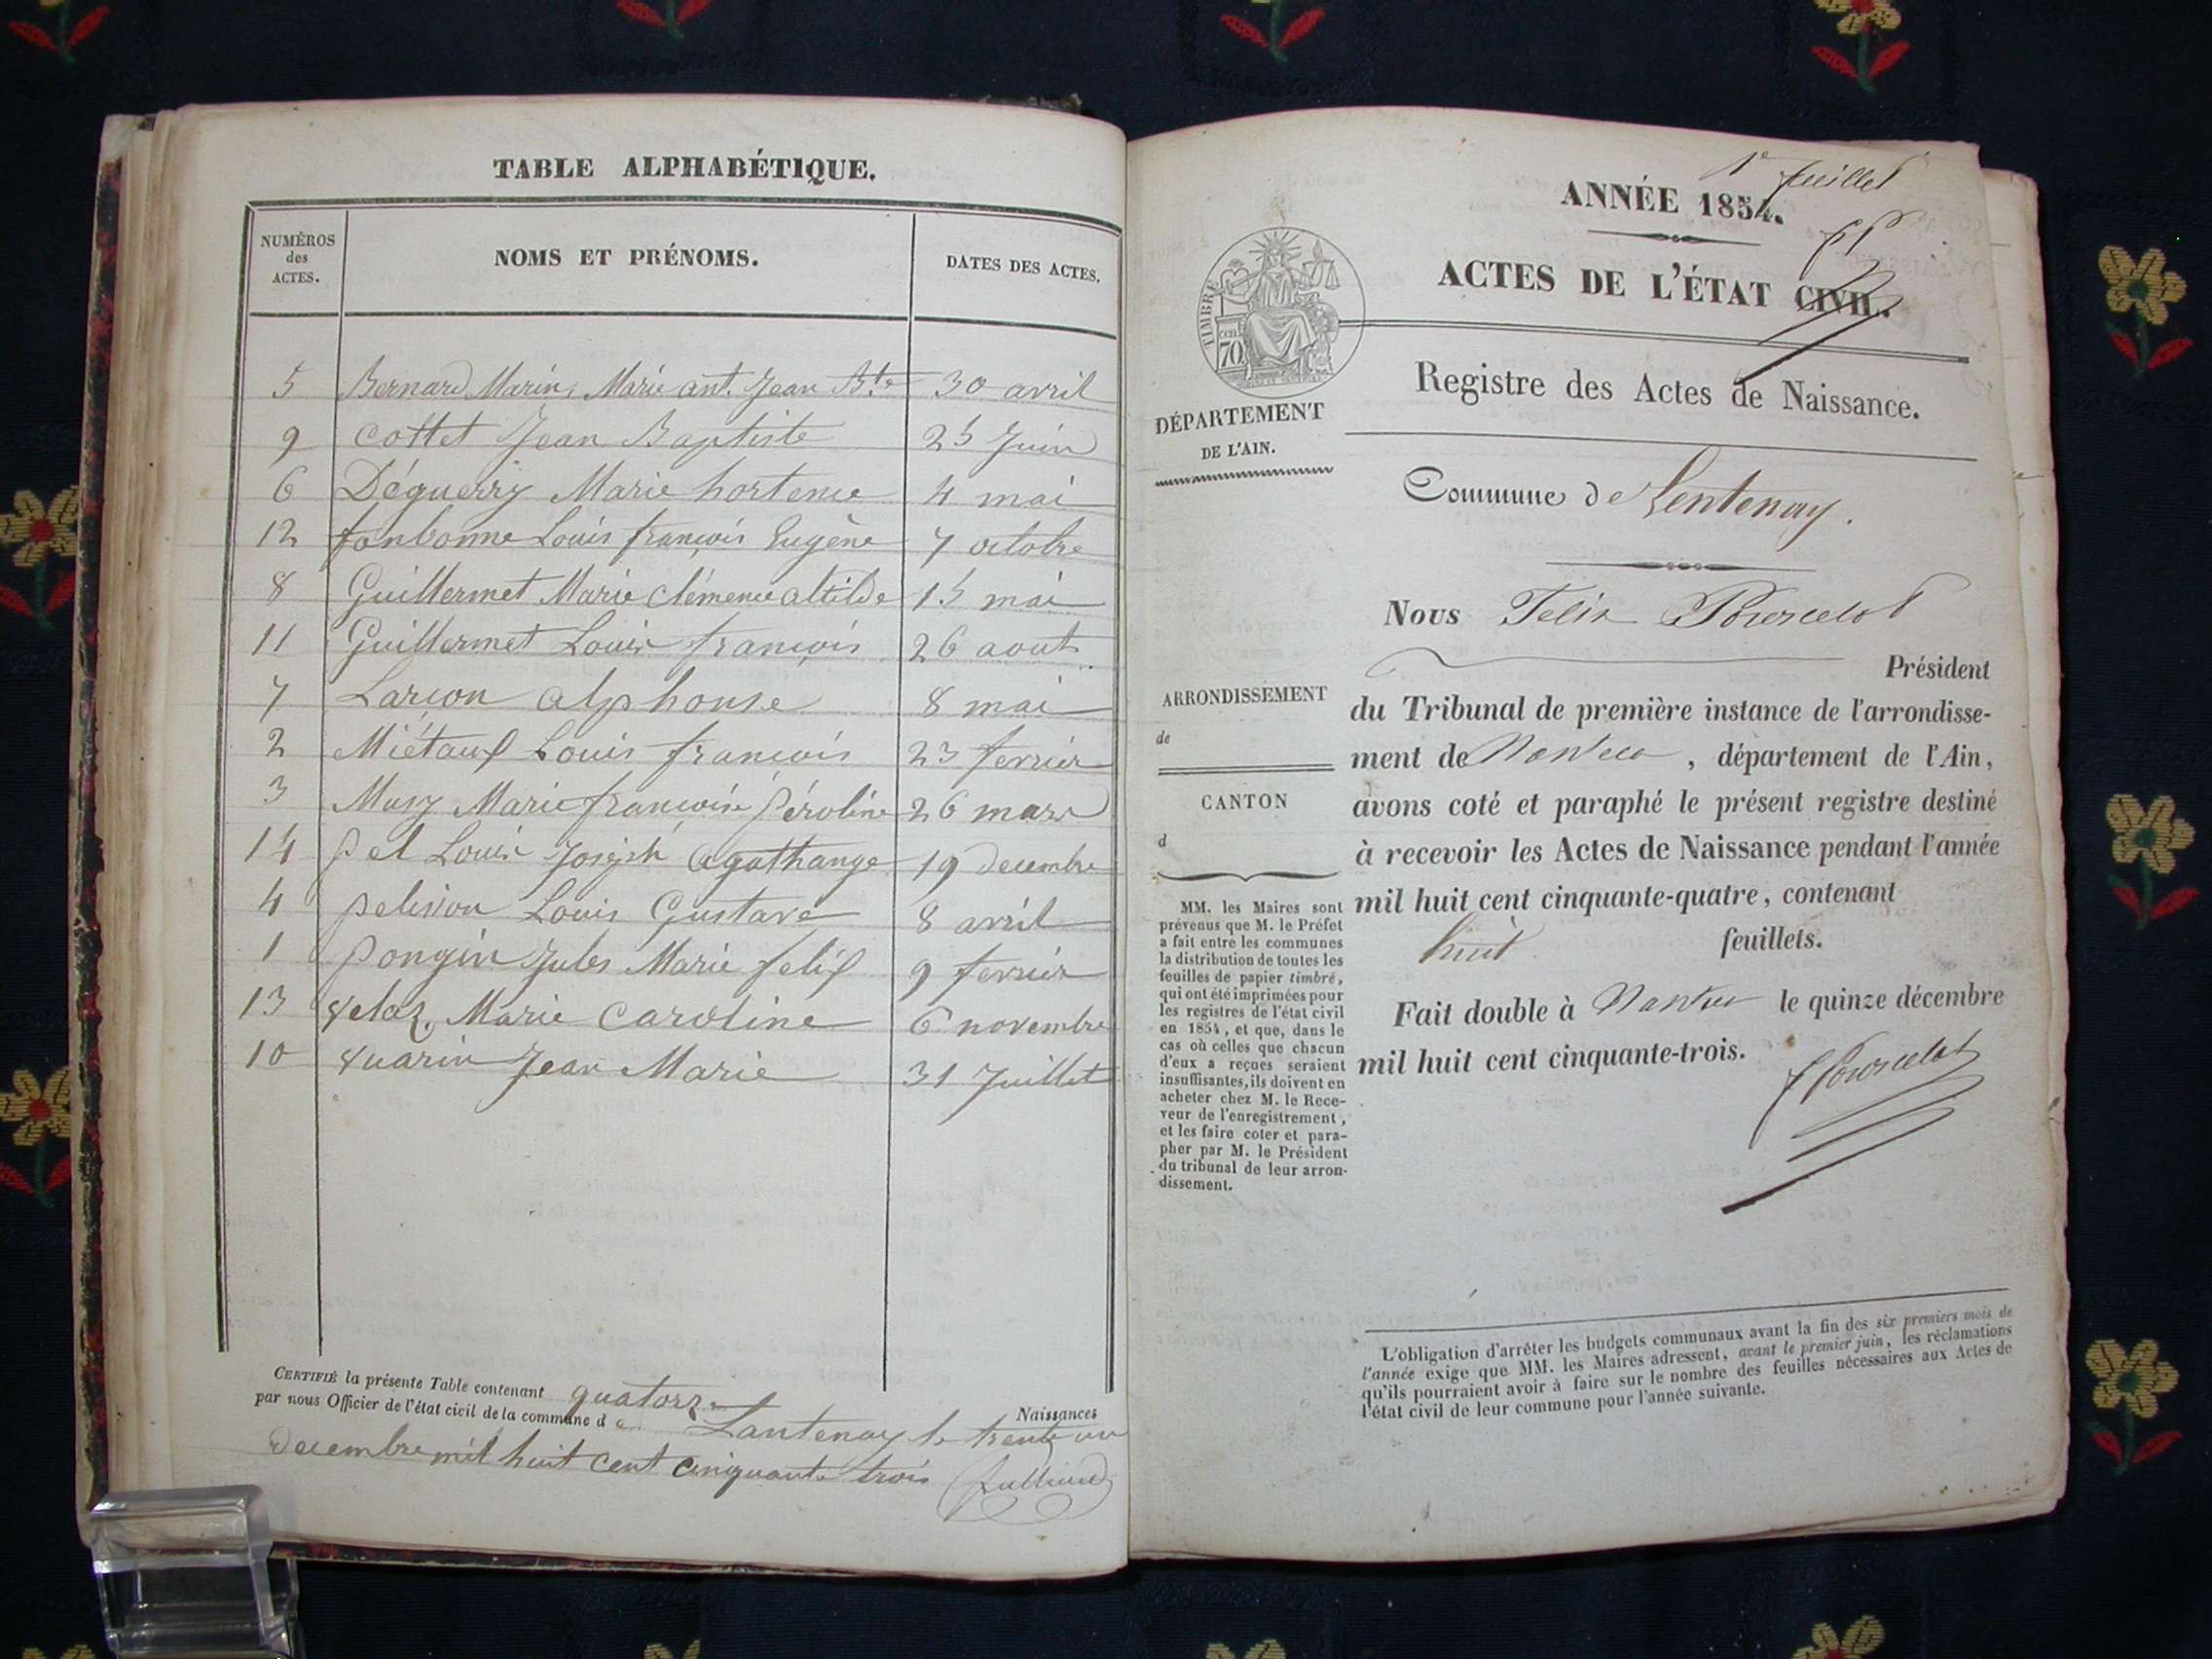 TABLE ALPHABÉTIQUE.
NUMÉROS
des
ACTES.
NOMS ET PRÉNOMS.
DATES DES ACTES.
5 Bernard Marin, Marie ant. Jean Bte 30 avril
9 Cottet Jean Baptiste 25 Juin
6 Déguerry Marie hortense 4 mai
12 fonbonne Louis françois Eugène 7 octobre
8 Guillermet Marie Clémence altilde 15 mai
11 Guillermet Louis françois 26 aout
7 Larçon alphonse 8 mai
2 Miétaux Louis françois 23 fevrier
3 Musy Marie françoise péroline 26 mars
14 pel Louis Joseph agathange 19 decembre
4 pelisson Louis Gustave 8 avril
1 pongin Jules Marie felix 9 fevrier
13 Marie Caroline 6 novembre
10 vuarin Jean Marie 31 Juillet
CERTIFIÉ la présente Table contenant quatorze Naissances
par nous Officier de l'état civil de la commune de Lantenay le trente un
decembre mil huit cent cinquante trois
1er feuillet
ANNÉE 1854.
ACTES DE L'ÉTAT CIVIL.
TIMBRE
70
cen.
Registre des Actes de Naissance.
DÉPARTEMENT
DE L'AIN.
Commune de Lentenay.
Nous Felix Pourcelot
Président
ARRONDISSEMENT
de
CANTON
d
du Tribunal de première instance de l'arrondisse-
ment de Nantua, département de l'Ain,
avons coté et paraphé le présent registre destiné
à recevoir les Actes de Naissance pendant l'année
mil huit cent cinquante-quatre, contenant
huit feuillets.
Fait double à Nantua le quinze décembre
mil huit cent cinquante-trois.
f Pourcelot
MM. les Maires sont
prévenus que M. le Préfet
a fait entre les communes
la distribution de toutes les
feuilles de papier timbré,
qui ont été imprimées pour
les registres de l'état civil
en 1854, et que, dans le
cas où celles que chacun
d'eux a reçues seraient
insuffisantes, ils doivent en
acheter chez M. le Rece-
veur de l'enregistrement,
et les faire coter et para-
pher par M. le Président
du tribunal de leur arron-
dissement.
L'obligation d'arrêter les budgets communaux avant la fin des six premiers mois de
l'année exige que MM. les Maires adressent, avant le premier juin, les réclamations
qu'ils pourraient avoir à faire sur le nombre des feuilles nécessaires aux Actes de
l'état civil de leur commune pour l'année suivante.